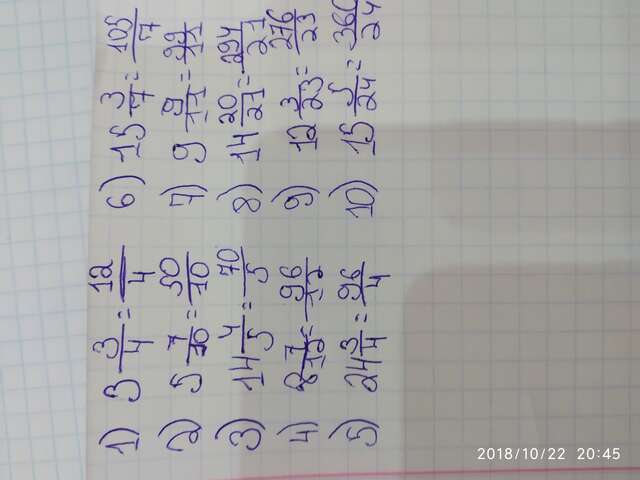 1) 3 3/4 = 12/4
2) 5 7/10 = 50/10
3) 14 4/5 = 70/5
4) 8 7/12 = 96/12
5) 24 3/4 = 96/4
6) 15 3/7 = 105/7
7) 9 9/11 = 99/11
8) 14 20/21 = 294/21
9) 12 3/23 = 276/23
10) 15 5/24 = 360/24
2018/10/22 20:45